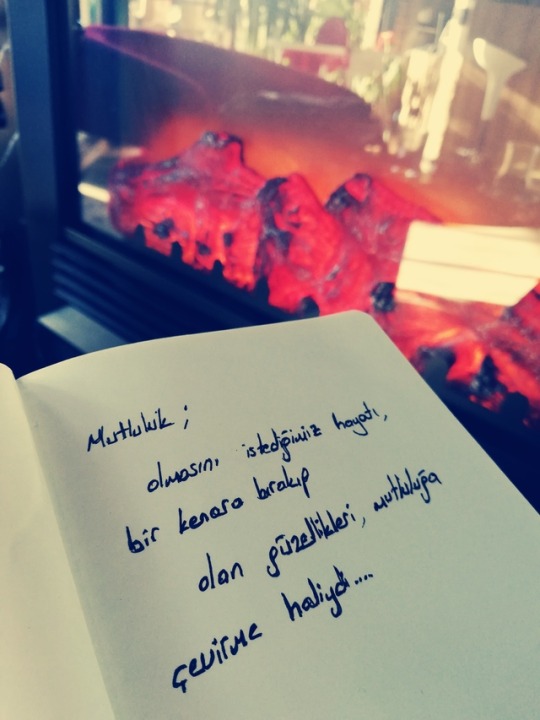 Mutluluk ;
olmasını istediğimiz hayatı,
bir kenara bırakıp
olan güzellikleri, mutluluğa
çevirme haliydi....